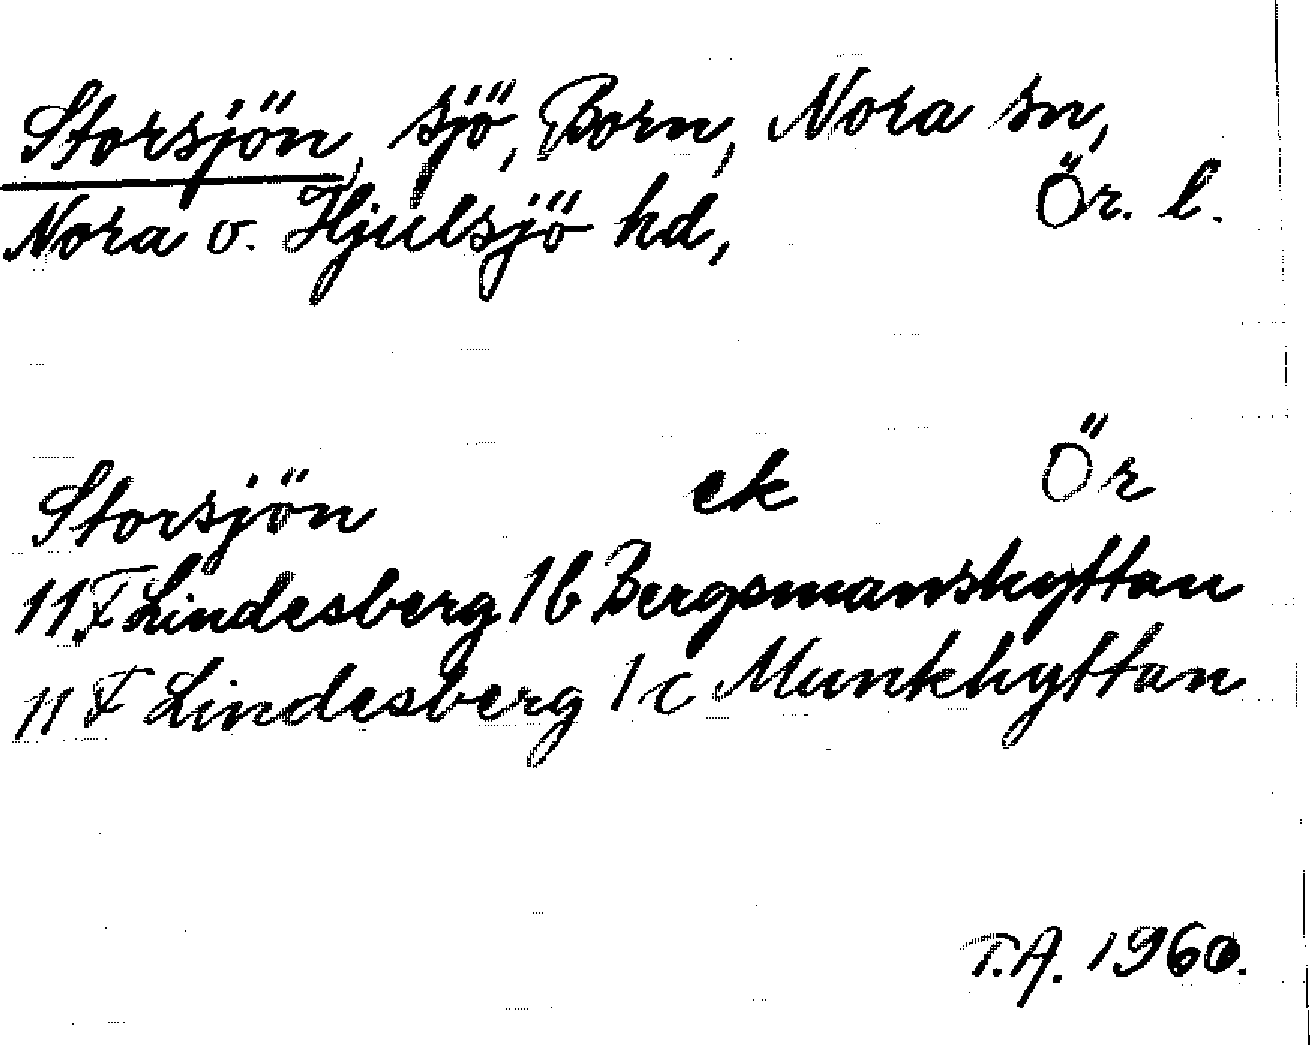 Storsjön, sjö, Born, Nora sn,
Nora o. Hjulsjö hd, Ör. l.
Storsjön ek Ör
11F Lindesberg 1b Bergsmanshyttan
11F Lindesberg 1c Munkhyttan
T.A. 1960.